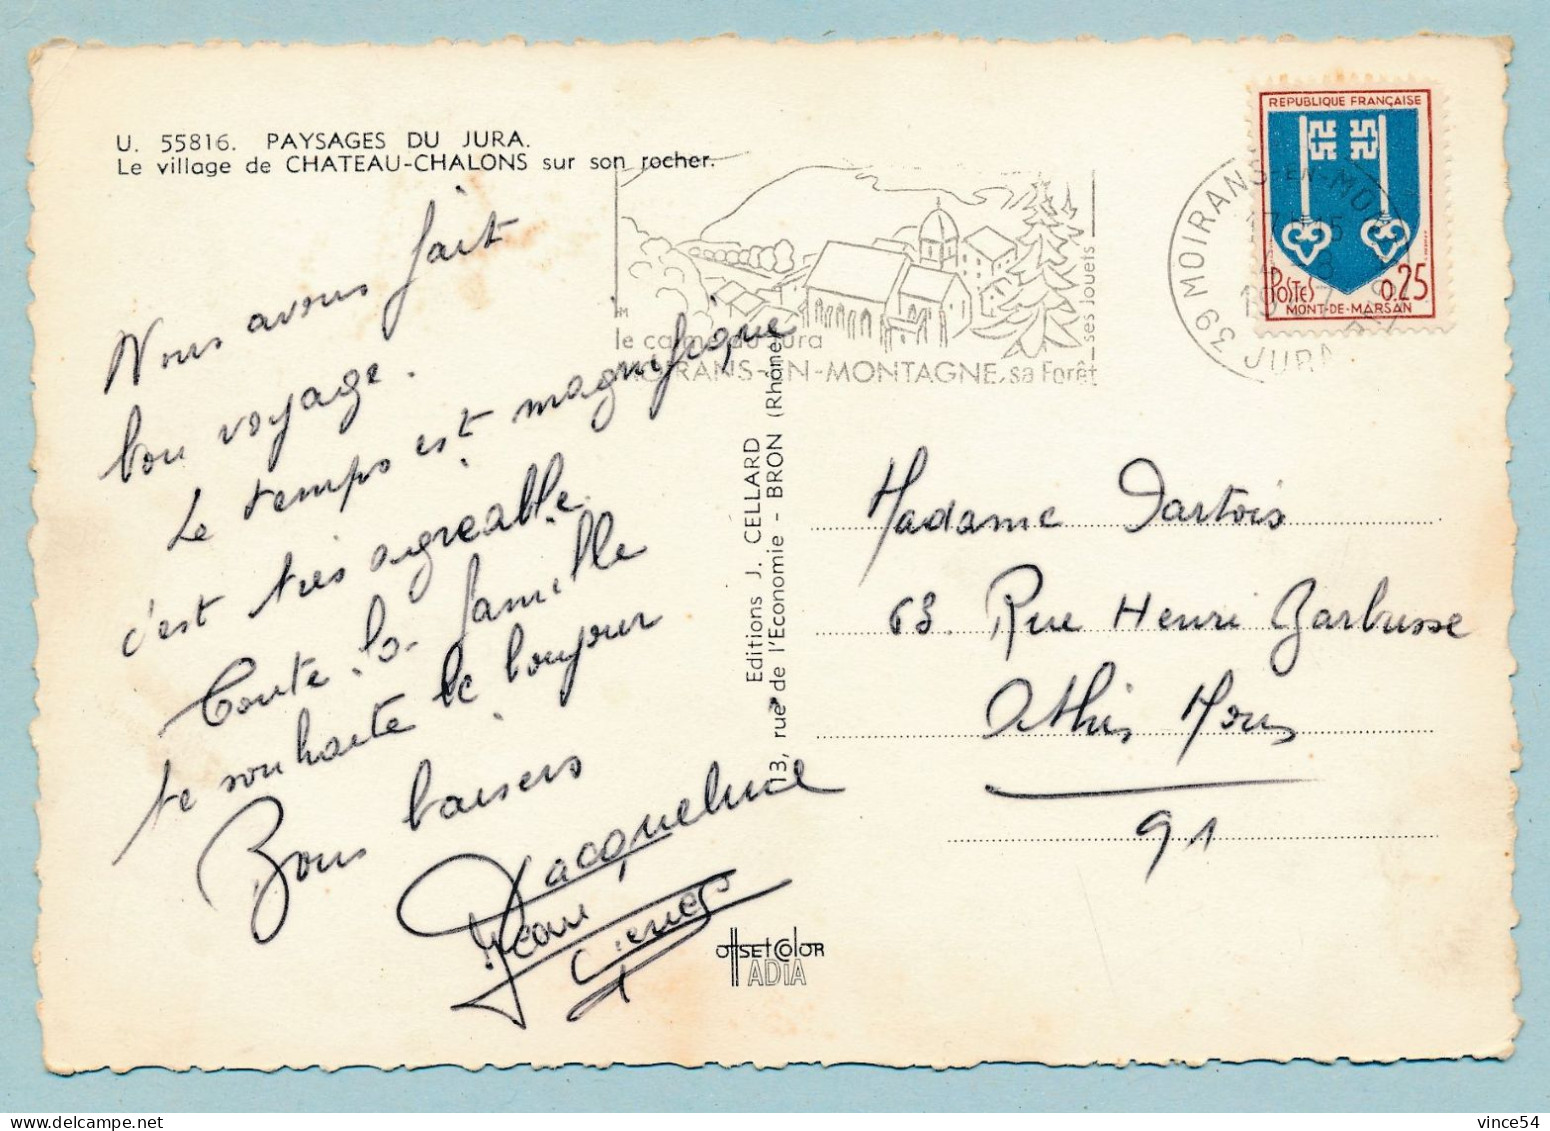 U. 55816. PAYSAGES DU JURA.
Le village de CHATEAU-CHALONS sur son rocher.
Nous avons fait
bon voyage.
Le temps est magnifique
c'est très agréable.
Toute la famille
te souhaite le bonjour
Bons baisers
Jacqueline
Jean
Editions J. CELLARD
13, rue de l'Economie - BRON (Rhône)
OffSET COlOR
ADIA
le calme du Jura
MOIRANS-EN-MONTAGNE, sa Forêt
ses Jouets
39 MOIRANS-EN-MONTAGNE
JURA
REPUBLIQUE FRANÇAISE
POSTES 0,25
MONT-DE-MARSAN
Madame Dartois
63. Rue Henri Barbusse
Athis Mons
91
vince54